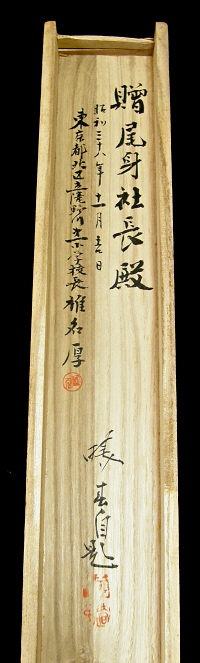 贈尾身社長殿
昭和三十八年十一月吉日
東京都北区立滝野川第小学校長椎名厚
春自題